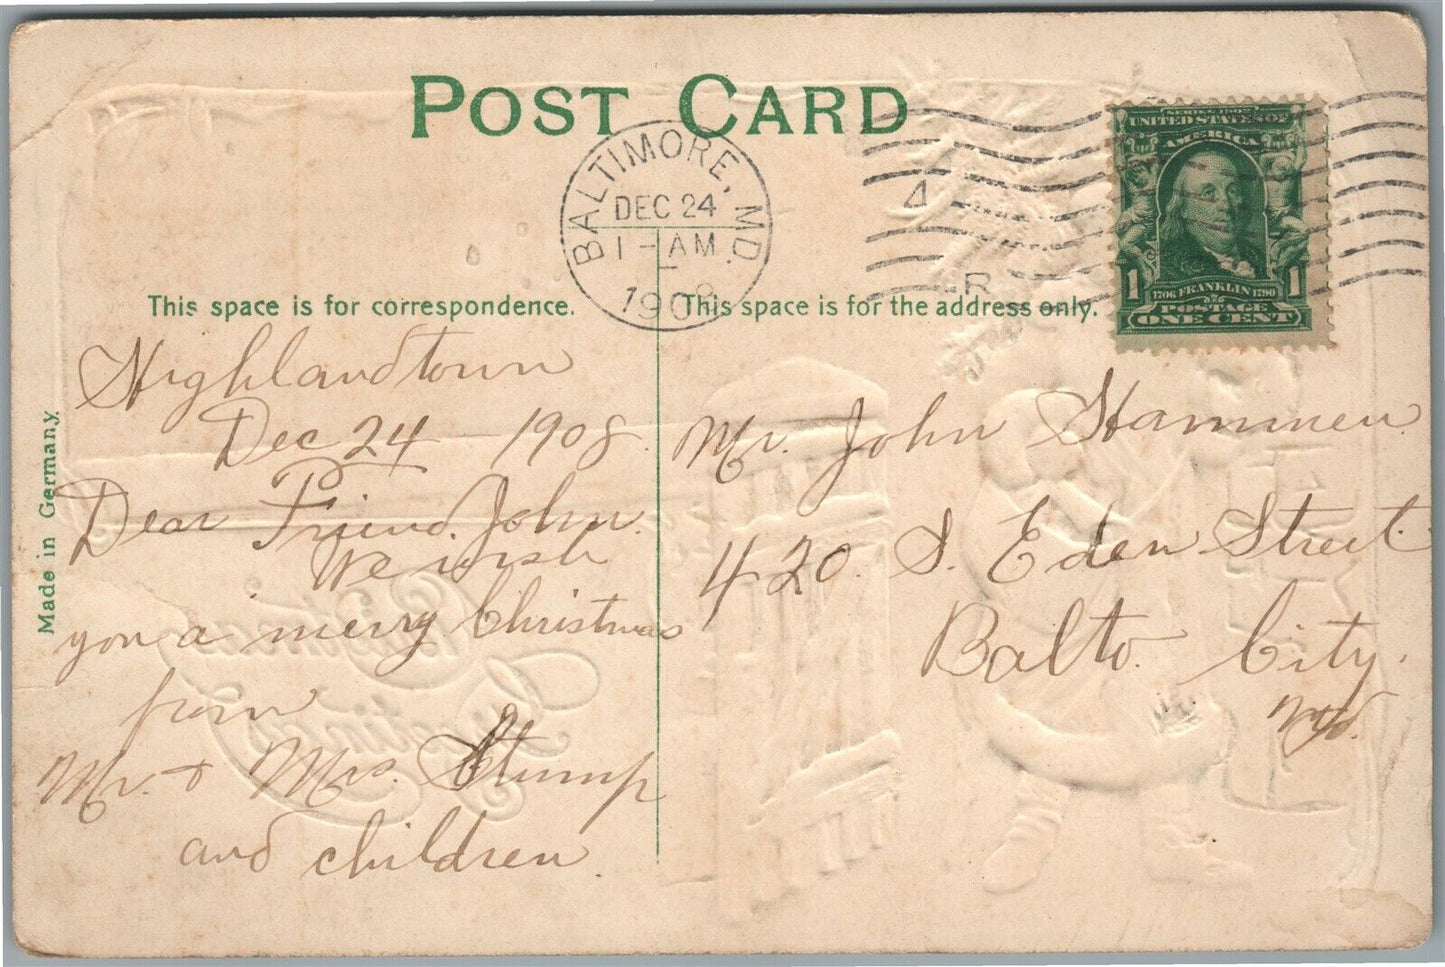 POST CARD
BALTIMORE, MD.
DEC 24
1 - AM
1908
4
R
UNITED STATES OF
AMERICA
1 1
1706 FRANKLIN 1790
POSTAGE
ONE CENT
This space is for correspondence.
This space is for the address only.
Made in Germany.
Highlandtown
Dec 24 1908.
Dear Friend John.
We wish
you a merry Christmas
from
Mr. + Mrs. Stump
and children.
Mr. John Stammen
420. S. Eden Street.
Balto. City.
Md.